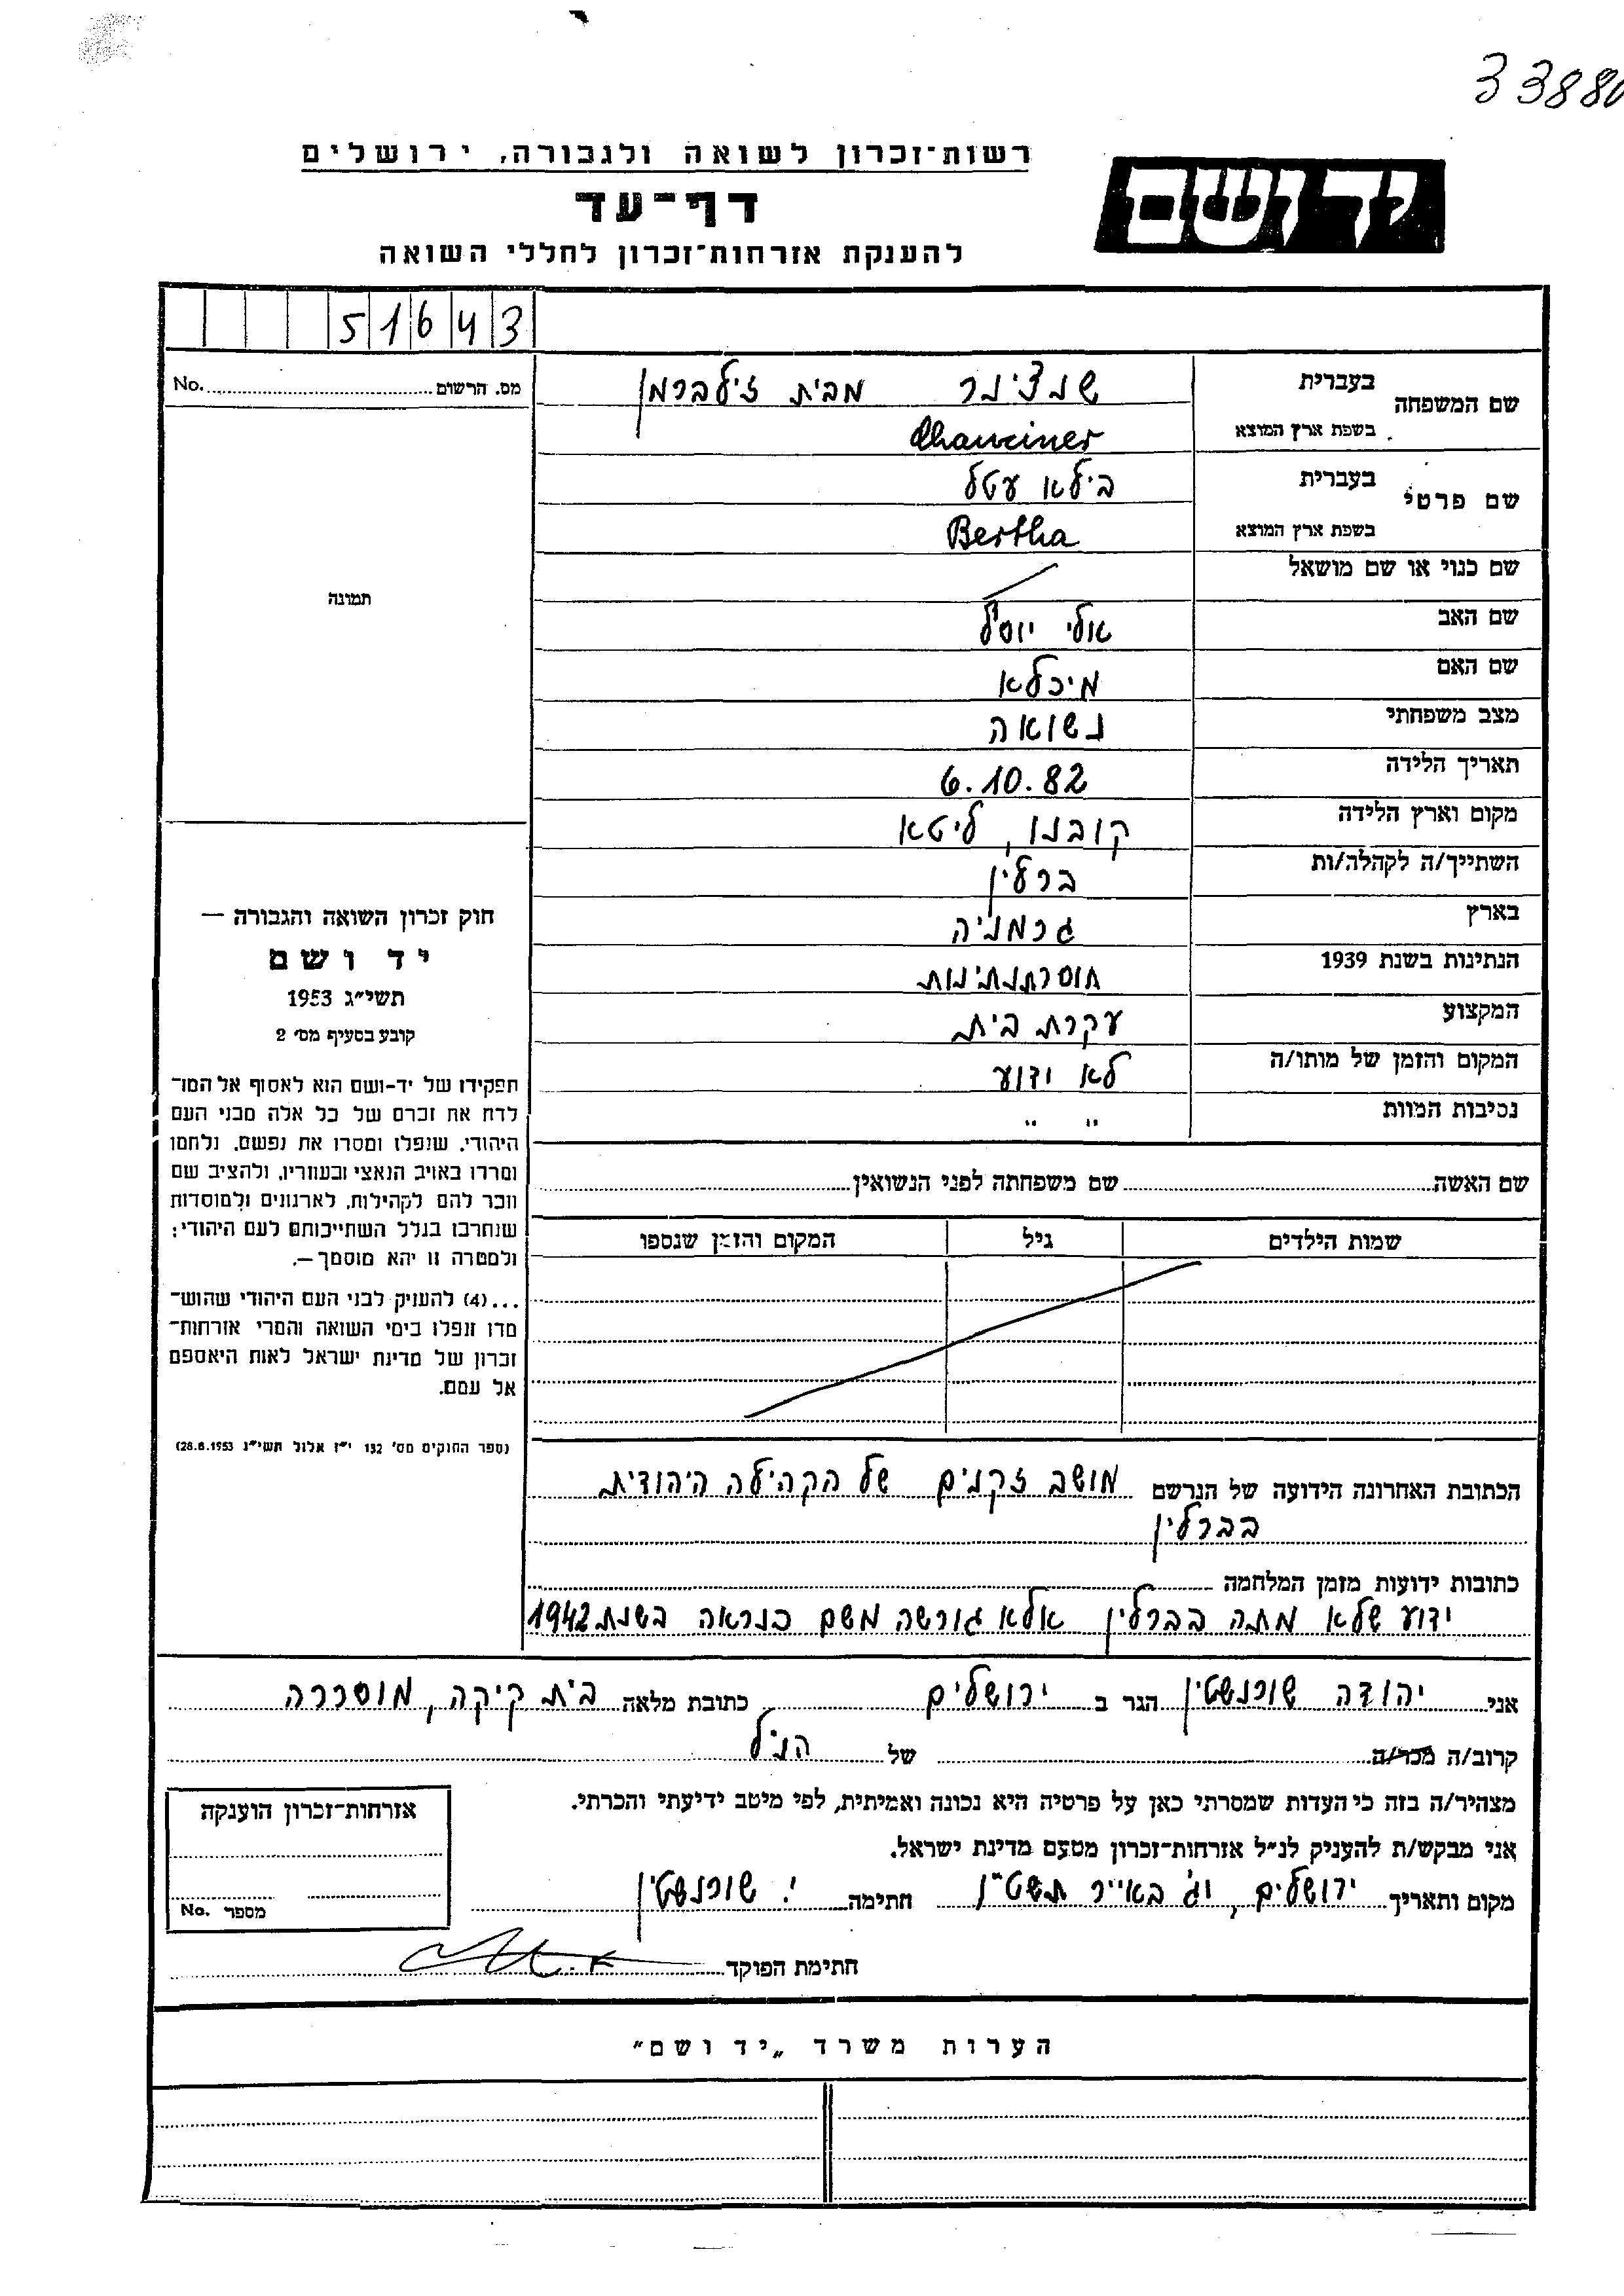 33880
רשות־זכרון לשואה ולגבורה, ירושלים
יד ושם
דף־עד
להענקת אזרחות־זכרון לחללי השואה
51643
מס. הרשום No.
שם המשפחה
בעברית שנצ'ינר מבית זילברמן
בשפת ארץ המוצא
שם פרטי
בעברית בילא עטל
בשפת ארץ המוצא Bertha
שם כנוי או שם מושאל
תמונה
שם האב אלי יוסל
שם האם מיכלא
מצב משפחתי נשואה
תאריך הלידה 6.10.82
מקום וארץ הלידה קובנו, ליטא
השתייך/ה לקהלה/ות ברלין
בארץ גרמניה
הנתינות בשנת 1939 חוסרת נתינות
המקצוע עקרת בית
המקום והזמן של מותו/ה לא ידוע
נסיבות המוות " "
שם האשה שם משפחתה לפני הנשואין
שמות הילדים גיל המקום והזמן שנספו
חוק זכרון השואה והגבורה —
יד ושם
תשי"ג 1953
קובע בסעיף מס' 2
תפקידו של יד-ושם הוא לאסוף אל המו־
לדת את זכרם של כל אלה מבני העם
היהודי, שנפלו ומסרו את נפשם, נלחמו
ומרדו באויב הנאצי ובעוזריו, ולהציב שם
וזכר להם לקהילות, לארגונים ולמוסדות
שנחרבו בגלל השתייכותם לעם היהודי;
ולמטרה זו יהא מוסמך —.
...(4) להעניק לבני העם היהודי שהוש־
מדו ונפלו בימי השואה והמרי אזרחות־
זכרון של מדינת ישראל לאות היאספם
אל עמם.
(ספר החוקים מס' 132 י"ז אלול תשי"ג 28.8.1953)
הכתובת האחרונה הידועה של הנרשם מושב זקנים של הקהילה היהודית
בברלין
כתובות ידועות מזמן המלחמה
ידוע שלא מתה בברלין אלא גורשה משם כנראה בשנת 1942
אני יהודה שורנשטין הגר ב ירושלים כתובת מלאה בית קיקה, מוסררה
קרוב/ה מכר/ה של הנ"ל
מצהיר/ה בזה כי העדות שמסרתי כאן על פרטיה היא נכונה ואמיתית, לפי מיטב ידיעתי והכרתי.
אני מבקש/ת להעניק לנ"ל אזרחות־זכרון מטעם מדינת ישראל.
מקום ותאריך ירושלים, וג' באייר תשט"ו חתימה י. שורנשטין
חתימת הפוקד
אזרחות־זכרון הוענקה
מספר No.
הערות משרד „יד ושם"